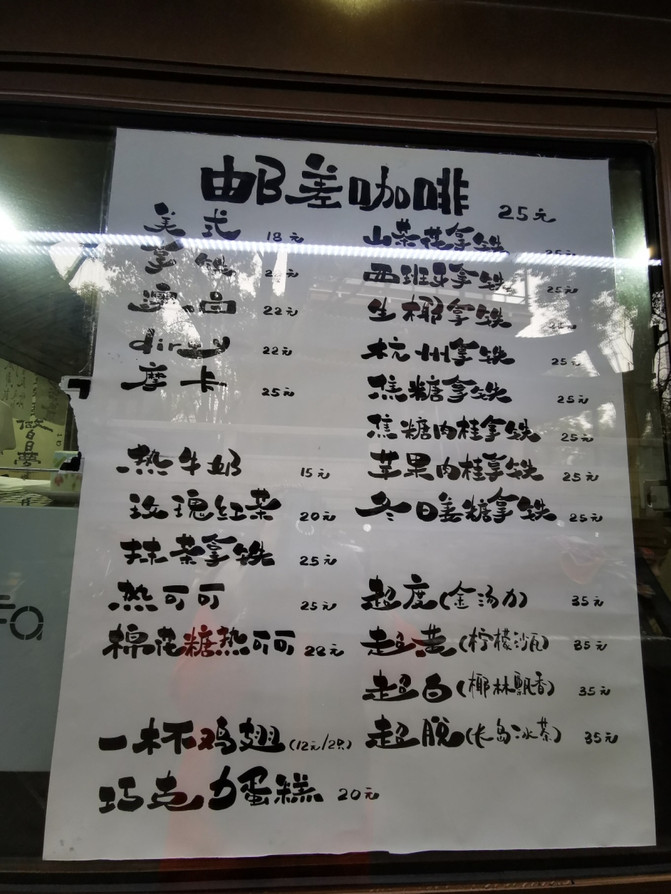 邮差咖啡 25元
美式 18元
拿铁
澳白 22元
dirty 22元
摩卡 25元
热牛奶 15元
玫瑰红茶 20元
抹茶拿铁 25元
热可可 25元
棉花糖热可可 28元
一杯鸡翅(12元/2只)
巧克力蛋糕 20元
山茶花拿铁 25元
西班牙拿铁 25元
生椰拿铁
杭州拿铁 25元
焦糖拿铁 25元
焦糖肉桂拿铁 25元
苹果肉桂拿铁 25元
冬日姜糖拿铁 25元
超度(金汤力) 35元
超黄(柠檬沙瓦) 35元
超白(椰林飘香) 35元
超脱(长岛冰茶) 35元
做白日梦